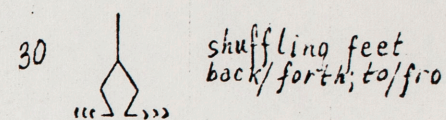 30
shuffling feet
back/forth; to/fro